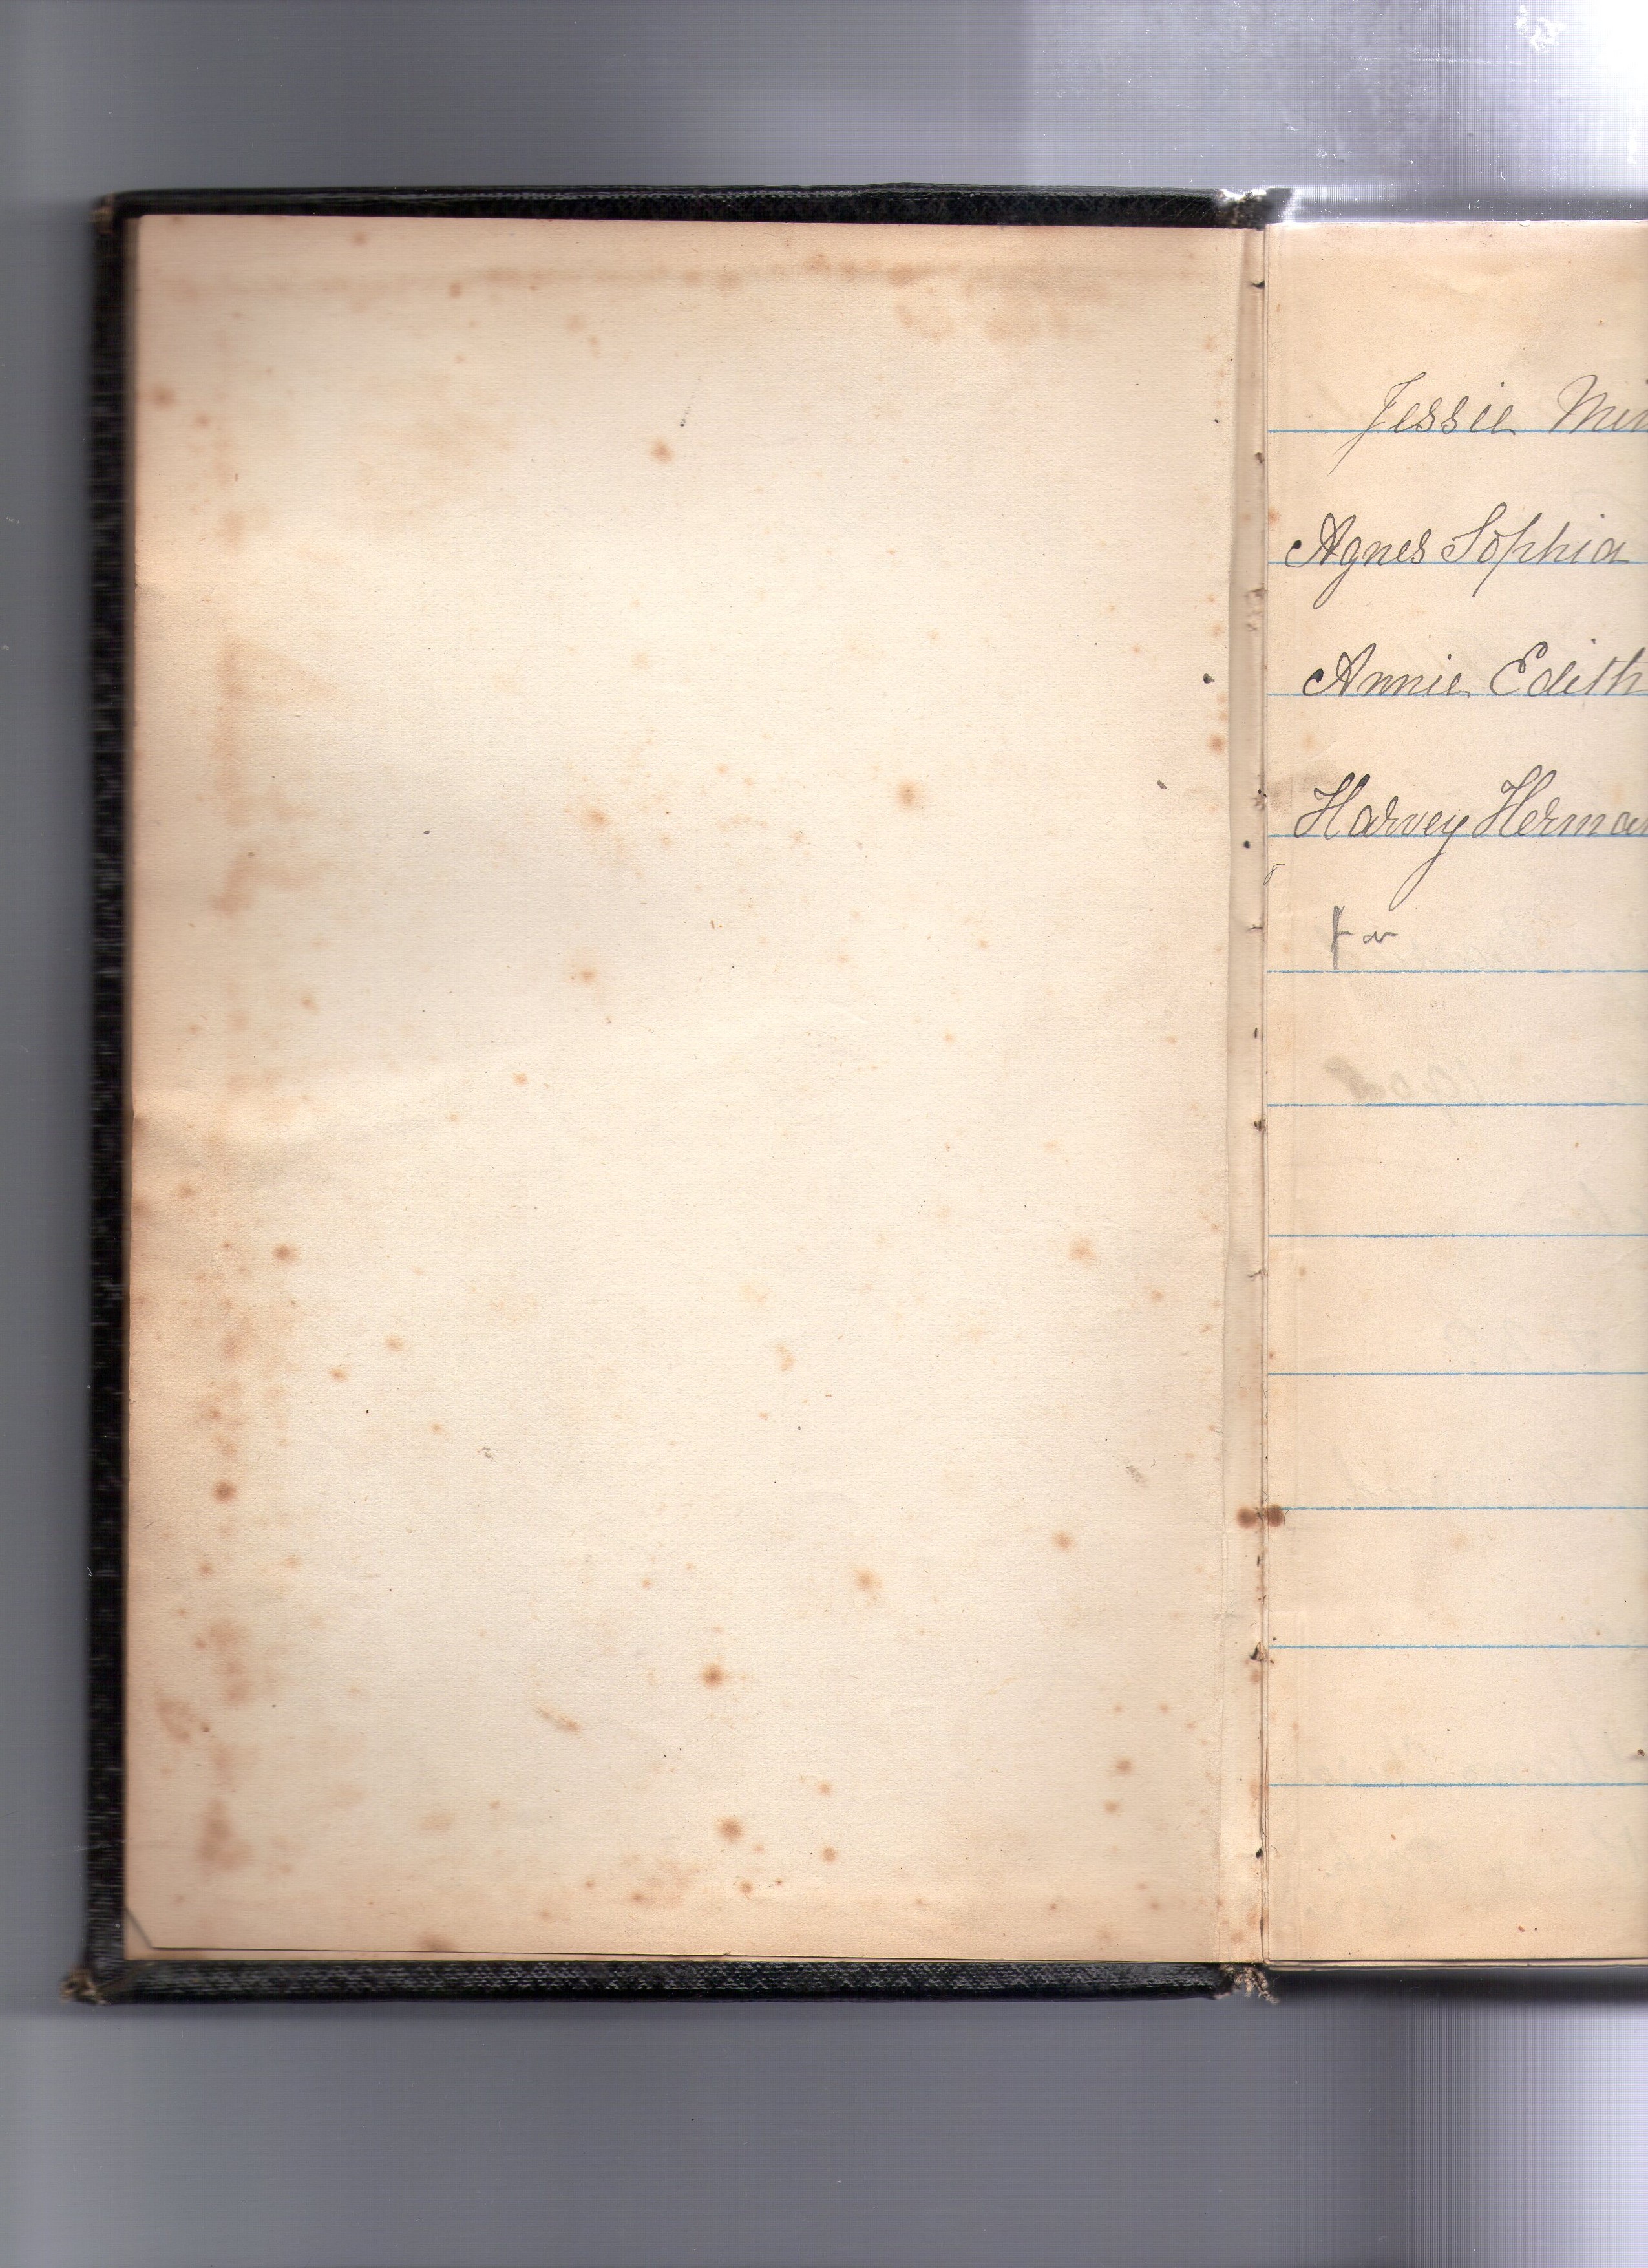 Jessie Min
Agnes Sophia
Annie Edith
Harvey Herman